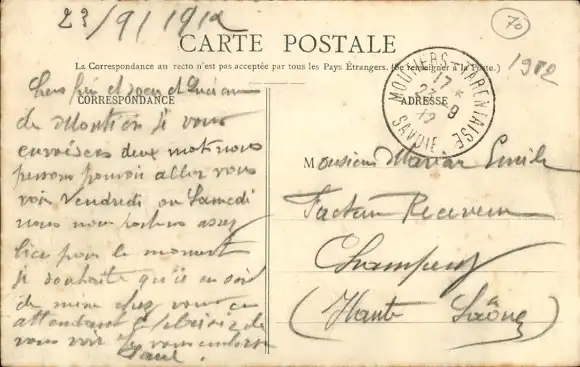 23/9/1912
70
CARTE POSTALE
La Correspondance au recto n'est pas acceptée par tous les Pays Étrangers. (Se renseigner à la Poste.)
1912
CORRESPONDANCE
ADRESSE
MOUTIERS-TARENTAISE
17 *
23 - 9
12
SAVOIE
de Moutiers je vous
envoie ces deux mots nous
pensons pouvoir aller vous
voir Vendredi ou Samedi
nous nous portons assez
bien pour le moment
je souhaite qu'il en soit
de meme chez vous en
attendant le plaisir de
vous voir je vous embrasse
Monsieur Emile
Facteur Receveur
(Haute Saône)